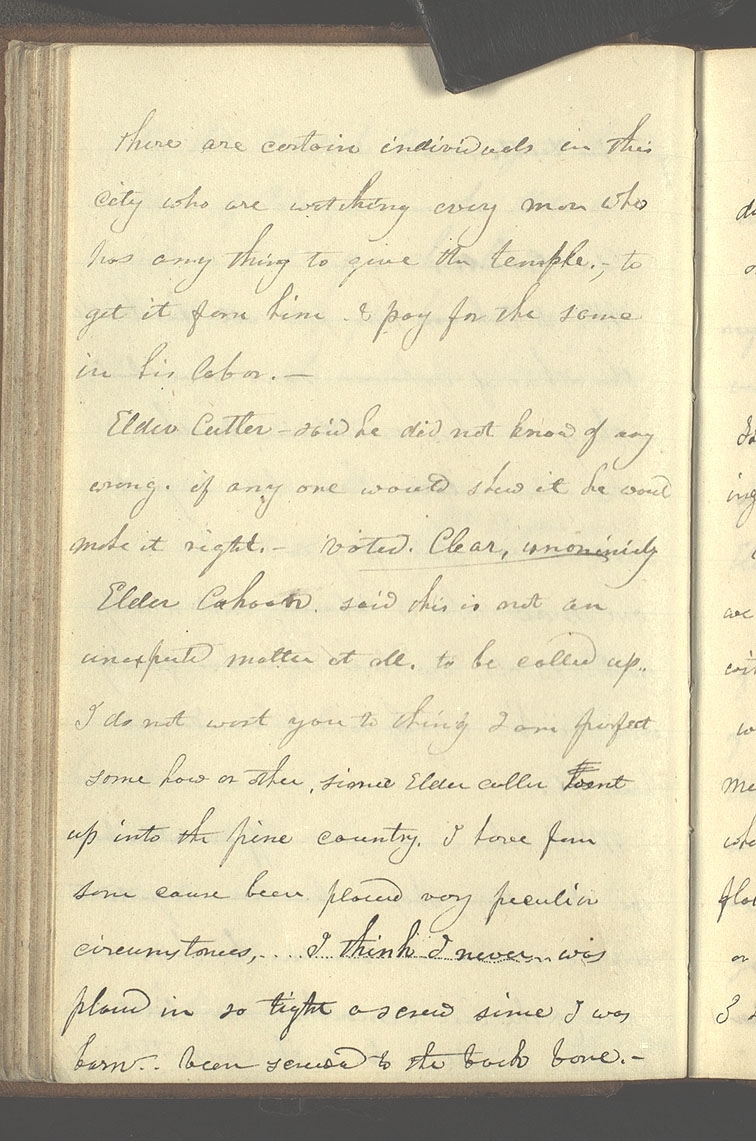 there are certain individuals in this
city who are watching every man who
has any thing to give the temple.; to
get it form him & pay for the same
in his labor.—
Elder Cutler—said he did not know of any
wrong. if any one would shew it he would
make it right.— voted. Clear, unanimily
Elder Cahoon. said this is not an
unexpected matter at all. to be called up..
I do not want you to thing I am perfect
some how or other, since Elder cutler went
up into the pine country. I have from
some cause been placed very peculiar
circumstances,. .. I think I never was
placed in so tight a screw since I was
born.. been screwed to the back bone.—
di
Ja
ing
we
wit
w
me
who
flo
or
3